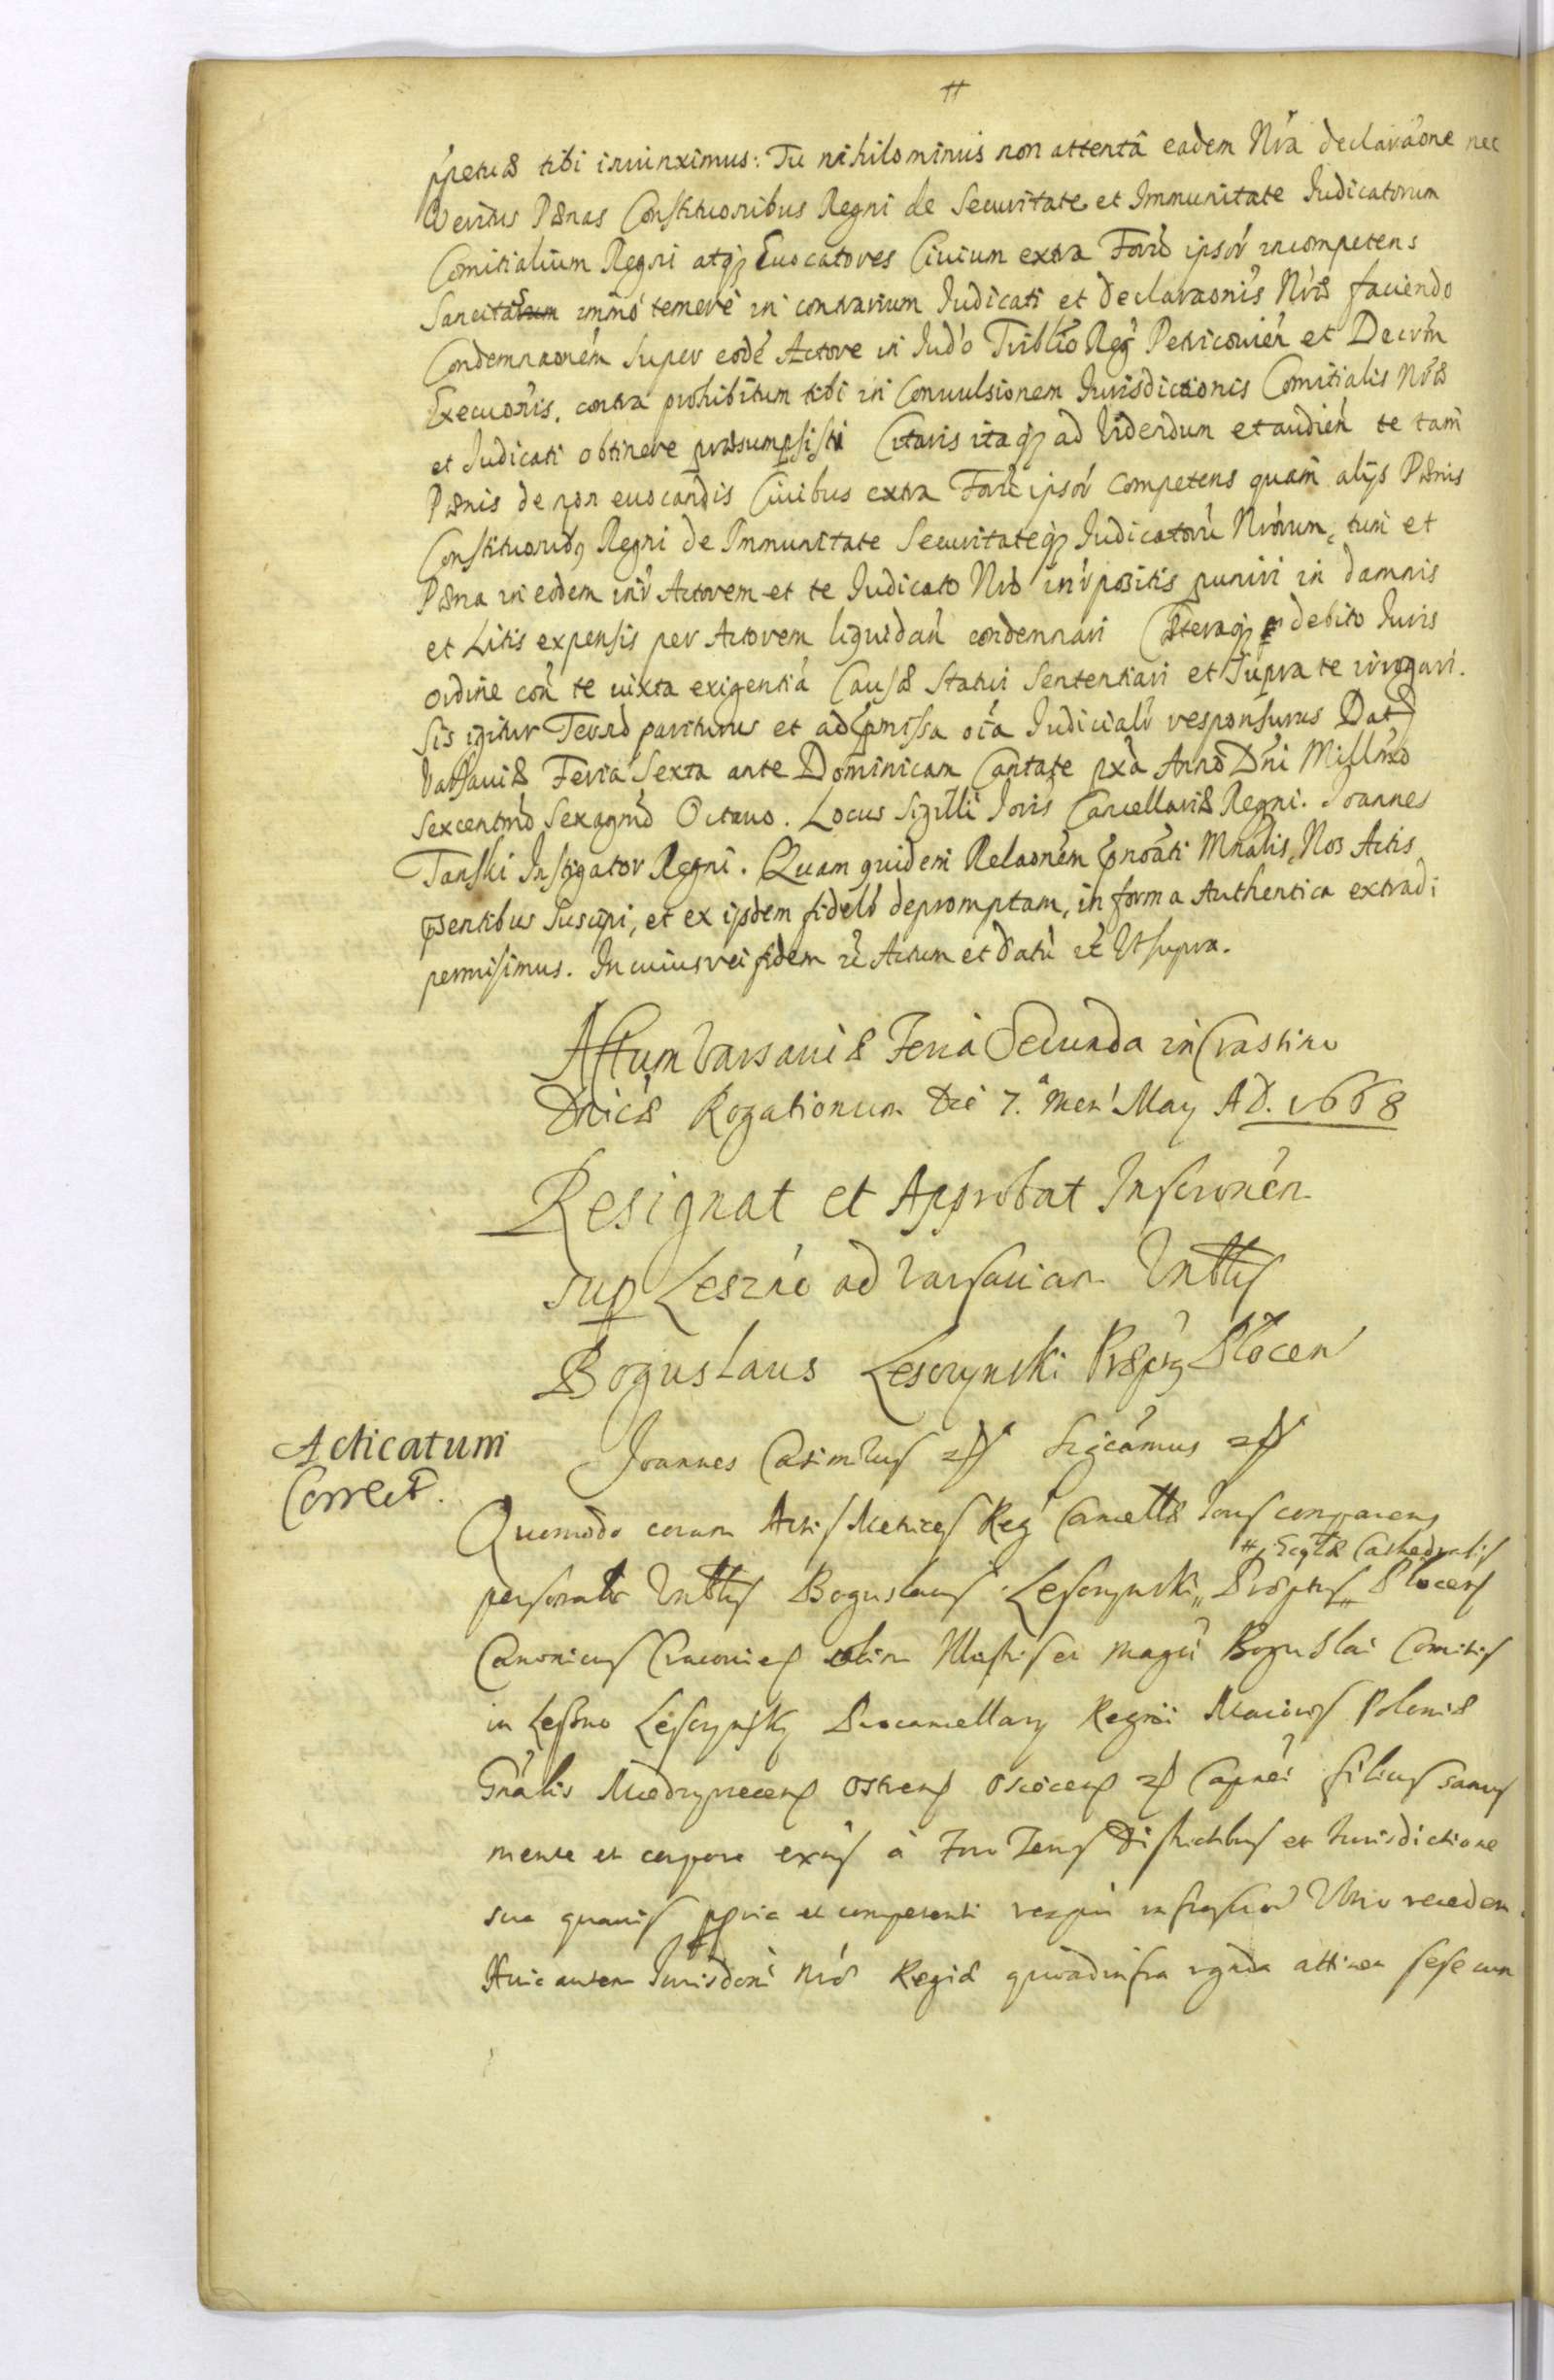 #
ppetuæ tibi iniunximus: Tu nihilominus non attentâ eadem Nra declaraone nec
Veritus Pænas Constituonibus Regni de Securitate et Immunitate Iudicatorum
Comitialium Regni atq Euocatores Ciuium extra Foru ipsor incompetens
Sancitas immo temere in contrarium Iudicati et declaraonis Nræ faciendo
Condemnaonem super eode Actore in Iudo Triblio Reg Petricouien et Decrm
Execuonis, contra prohibitum tibi in Conuulsionem Iurisdictionis Comitialis Nræ
et Iudicati obtinere præsumpsisti Citaris itaq ad Videndum et audien te tam
Pænis de non euocandis Ciuibus extra Foru ipsor competens quam alijs Pænis
Constituonibq Regni de Immunitate Securitateq Iudicatoru Nrorum, tum et
Pæna in eodem inr Actorem et te Iudicato Nro interpositis puniri in damnis
et Litis expensis per Actorem liquidan condemnari Cæteraq debito Iuris
ordine con te iuxta exigentia Causæ statui sententiari et supra te irrogari.
Sis igitur Termo pariturus et ad pmissa oia Iudicialr responsurus Dat
Varsauiæ Feria Sexta ante Dominicam Cantate pxa Anno Dni Millmo
Sexcentmo Sexagmo Octauo. Locus Sigilli Ioris Cancellariæ Regni. Joannes
Tanski Instigator Regni. Quam quidem Relaonem pnoati Mnalis, Nos Actis
psentibus suscipi, et ex ijsdem fidelr depromptam, in forma Authentica extradi
permisimus. In cuius rei fidem rc Actum et Datu rc Ut supra.
Actum Varsauiæ Feria Secunda in Crastino
Dnicæ Rogationum Die 7.a Men May AD. 1668
Resignat et Approbat Inscronem
sup Leszno ad Varsauiam Vnblis
Boguslaus Lesczynski Præptq Plocen
Acticatum
Correct.
Joannes Casimirus Sigcamus
Quomodo coram Actis Metrices Reg Cancellæ ions comparens
# Ecclæ Cathedralis
personalr Vnblis Boguslaus Lesczynski Præptus Plocens
Canonicus Cracouies olim Illustris et Magci Boguslai Comitis
in Leszno Lesczynsky Procancellary Regni Maioris Poloniæ
Gnalis Miedzyrecens Ostrens Osiecens Capnei filius sanus
mente et corpore exns à Foro Terris Districtibus et Iurisdictione
sua quauis ppria et competenti recedens
Huic autem Iurisdoni Nræ Regiæ quoad infra attinen sese cum